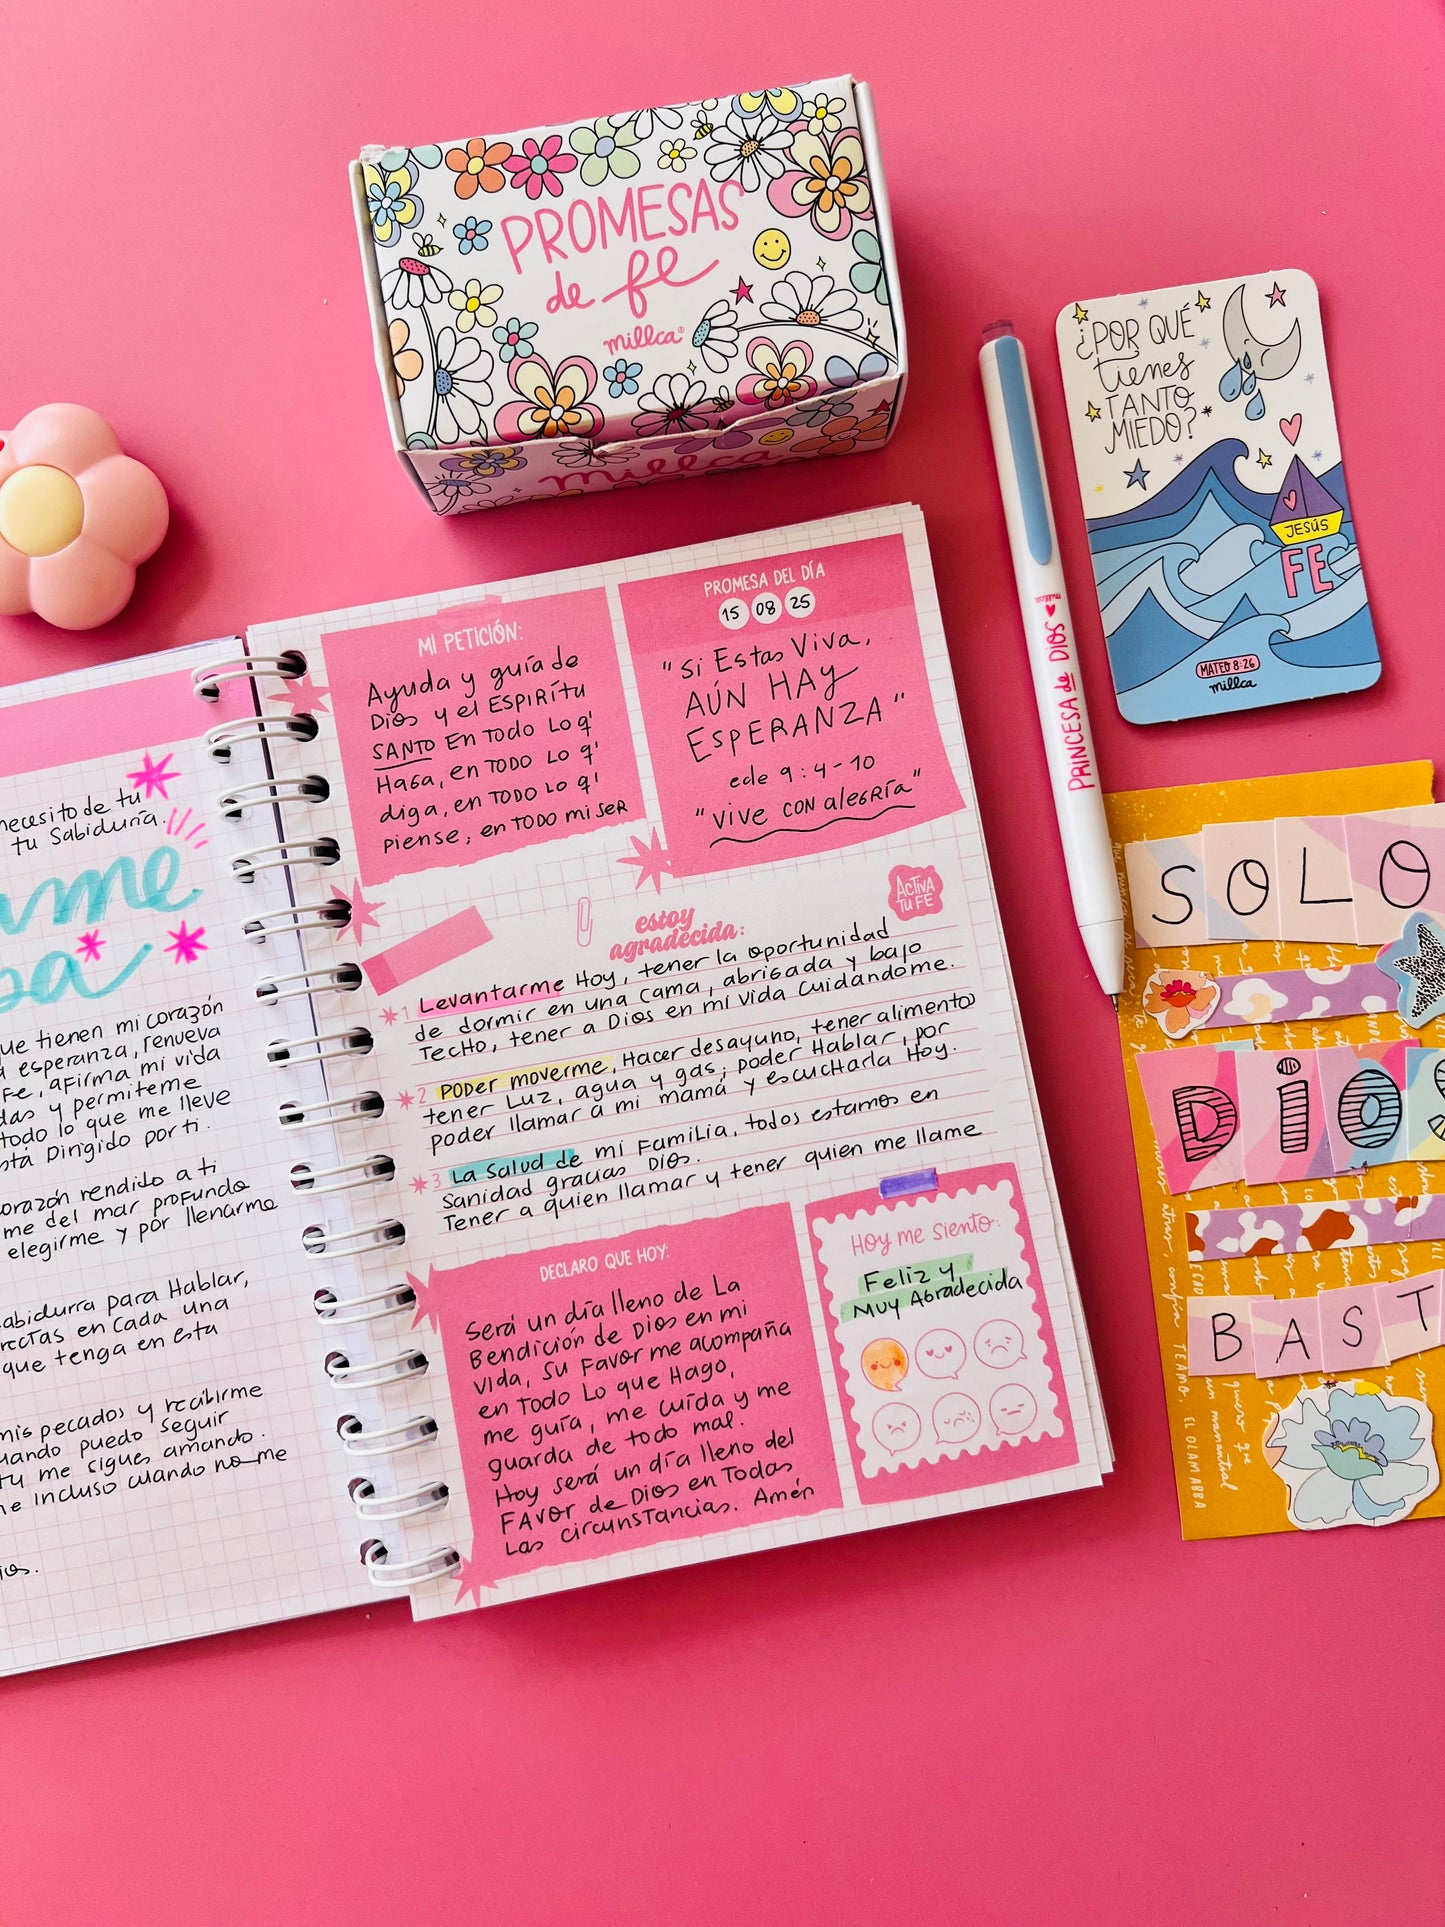 PROMESAS
de fe
millca
millca
¿POR QUÉ
tienes
TANTO
MIEDO?
JESÚS
FE
MATEO 8:26
millca
PRINCESA de DIOS
millca
necesito de tu
tu Sabiduría.
ue tienen mi corazón
esperanza, renueva
Fe, aFirma mi vida
das y permiteme
todo lo que me lleve
stá Dirigido por ti.
orazón rendido a ti
me del mar profundo
elegirme y por llenarme
abidurra para Hablar,
rectas en cada una
que tenga en esta
mis pecados y recibirme
uando puedo seguir
tu me sigues amando.
ne incluso cuando no me
MI PETICIÓN:
Ayuda y guía de
Dios y el ESPIRítu
SANTO En Todo Lo q'
Haga, en TODO Lo q'
diga, en TODO LO q'
piense, en TODO mi SER
PROMESA DEL DÍA
15 08 25
"Si Estas Viva,
AÚN HAY
ESPERANZA"
ecle 9:4-10
"vive CON alegRía"
ACTIVA
TU FE
estoy
agradecida:
1 Levantarme Hoy, tener la oportunidad
de dormir en una cama, abrigada y bajo
TecHo, tener a Dios en mi vida cuidándome.
2 PODer moverme, Hacer desayuno, tener alimento
tener Luz, agua y gas, poder Hablar, por
poder llamar a mi mamá y escucharla Hoy.
3 La Salud de mi Familia, todos estamos en
Sanidad gracias Dios.
Tener a quien llamar y tener quien me llame
DECLARO QUE HOY:
Será un día lleno de La
Bendición de Dios en mi
vida, Su Favor me acompaña
en Todo Lo que Hago,
me guía, me cuida y me
guarda de todo mal.
Hoy será un día lleno del
FAvor de Dios en Todas
Las circunsTancias. Amén
Hoy me siento:
Feliz y
Muy Agradecida
SOLO
DiOS
BAST
TEAMO, EL OLAM ABBA